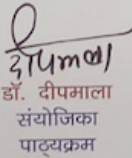 दीपमाला
डॉ. दीपमाला
संयोजिका
पाठ्यक्रम